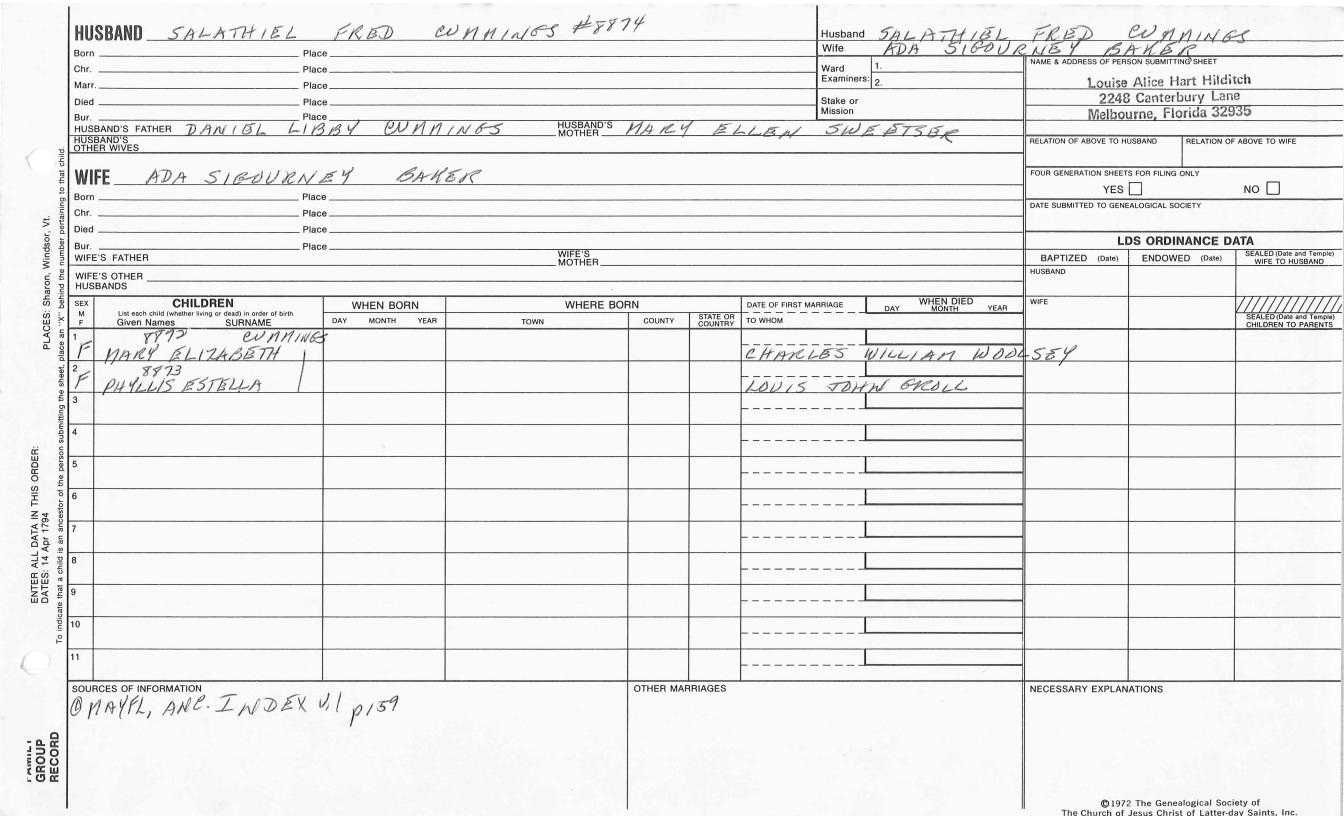 HUSBAND SALATHIEL FRED CUMMINGS #8874
Born Place
Chr. Place
Marr. Place
Died Place
Bur. Place
HUSBAND'S FATHER DANIEL LIBBY CUMMINGS HUSBAND'S MOTHER MARY ELLEN SWEETSER
HUSBAND'S OTHER WIVES
WIFE ADA SIGOURNEY BAKER
Born Place
Chr. Place
Died Place
Bur. Place
WIFE'S FATHER WIFE'S MOTHER
WIFE'S OTHER HUSBANDS
Husband SALATHIEL FRED CUMMINGS
Wife ADA SIGOURNEY BAKER
Ward Examiners: 1.
2.
Stake or Mission
NAME & ADDRESS OF PERSON SUBMITTING SHEET
Louise Alice Hart Hilditch
2248 Canterbury Lane
Melbourne, Florida 32935
RELATION OF ABOVE TO HUSBAND RELATION OF ABOVE TO WIFE
FOUR GENERATION SHEETS FOR FILING ONLY
YES NO
DATE SUBMITTED TO GENEALOGICAL SOCIETY
LDS ORDINANCE DATA
BAPTIZED (Date) ENDOWED (Date) SEALED (Date and Temple) WIFE TO HUSBAND
HUSBAND
WIFE
SEALED (Date and Temple) CHILDREN TO PARENTS
SEX M F
CHILDREN
List each child (whether living or dead) in order of birth
Given Names SURNAME
WHEN BORN
DAY MONTH YEAR
WHERE BORN
TOWN COUNTY STATE OR COUNTRY
DATE OF FIRST MARRIAGE
TO WHOM
WHEN DIED
DAY MONTH YEAR
1 8872 CUMMINGS
F MARY ELIZABETH CHARLES WILLIAM WOOLSEY
2 8873
F PHYLLIS ESTELLA LOUIS JOHN GROLL
3
4
5
6
7
8
9
10
11
SOURCES OF INFORMATION
① MAYFL, ANC. INDEX V.1 p159
OTHER MARRIAGES
NECESSARY EXPLANATIONS
©1972 The Genealogical Society of
The Church of Jesus Christ of Latter-day Saints, Inc.
ENTER ALL DATA IN THIS ORDER:
DATES: 14 Apr 1794 PLACES: Sharon, Windsor, Vt.
To indicate that a child is an ancestor of the person submitting the sheet, place an "X" behind the number pertaining to that child.
FAMILY
GROUP
RECORD